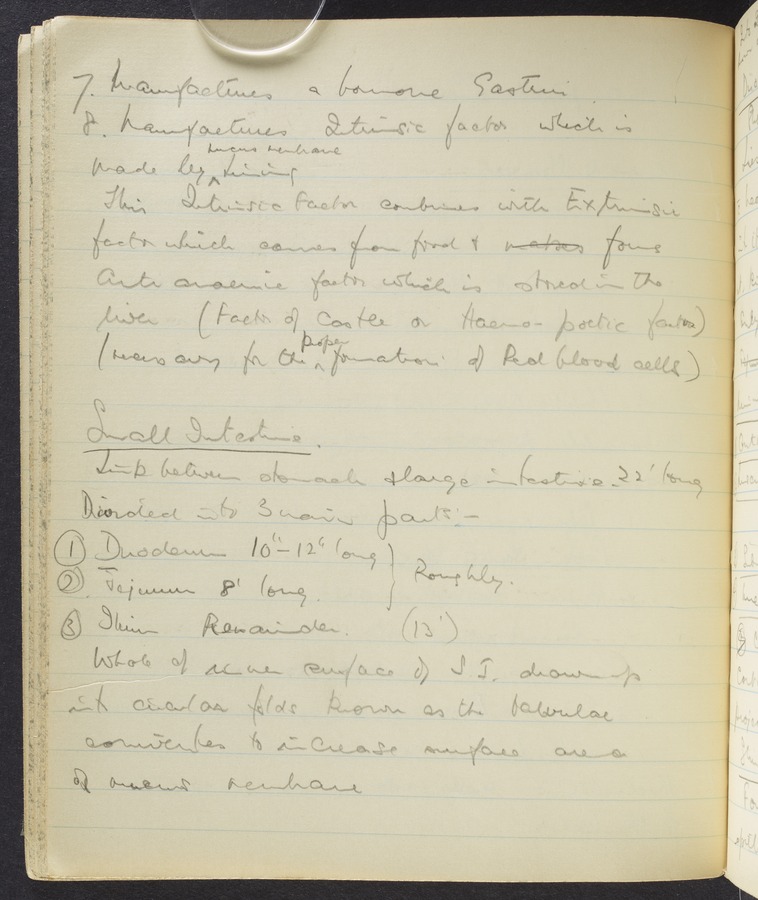 7. Manufactures a hormone Gastrin.
8. Manufactures Intrinsic factor which is
made by mucus membrane lining
This Intrinsic Factor combines with Extrinsic
factor which comes from food & makes forms
anti anaemic factor which is stored in the
liver (Factor of Castle or Haemo-poetic factor)
(necessary for the proper formation of Red blood cells)
Small Intestine.
Link between stomach & large intestine 22' long
Divided into 3 main parts:-
① Duodenum 10"-12" long } Roughly.
②. Jejunum 8' long.
③ Ilium Remainder. (13')
Whole of inner surface of S I. drawn up
into circular folds known as the valvulae
conniventes to increase surface area
of mucus membrane